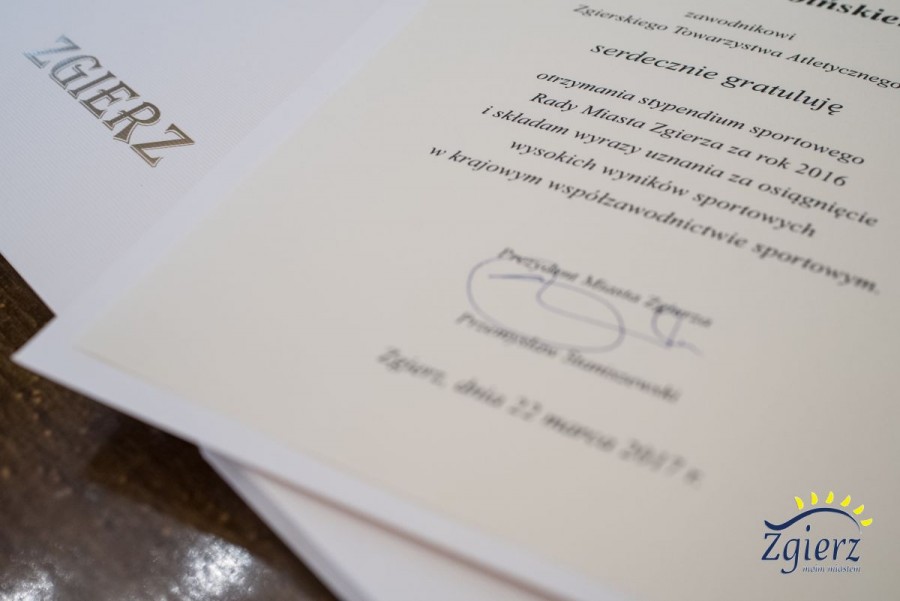 ZGIERZ
zawodnikowi
Zgierskiego Towarzystwa Atletycznego
serdecznie gratuluję
otrzymania stypendium sportowego
Rady Miasta Zgierza za rok 2016
i składam wyrazy uznania za osiągnięcie
wysokich wyników sportowych
w krajowym współzawodnictwie sportowym.
Prezydent Miasta Zgierza
Przemysław Staniszewski
Zgierz, dnia 22 marca 2017 r.
Zgierz
moim miastem